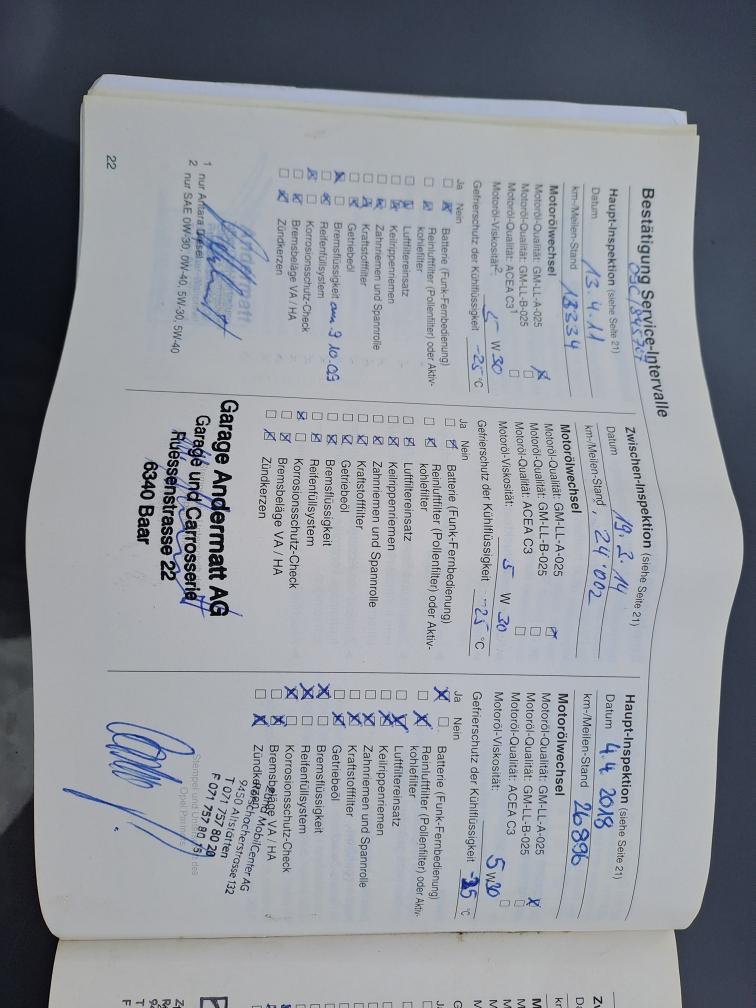 Bestätigung Service-Intervalle
Haupt-Inspektion (siehe Seite 21)
Datum 13.4.11
km-/Meilen-Stand 13334
Motorölwechsel
Motoröl-Qualität: GM-LL-A-025
Motoröl-Qualität: GM-LL-B-025
Motoröl-Qualität: ACEA C3 1
Motoröl-Viskosität 2: 5 W 30
Gefrierschutz der Kühlflüssigkeit -25 °C
Ja Nein
Batterie (Funk-Fernbedienung)
Reinluftfilter (Pollenfilter) oder Aktiv-
kohlefilter
Luftfiltereinsatz
Keilrippenriemen
Zahnriemen und Spannrolle
Kraftstofffilter
Getriebeöl
Bremsflüssigkeit am 9.10.09
Reifenfüllsystem
Korrosionsschutz-Check
Bremsbeläge VA / HA
Zündkerzen
1 nur Antara Diesel
2 nur SAE 0W-30, 0W-40, 5W-30, 5W-40
22
Zwischen-Inspektion (siehe Seite 21)
Datum 19.2.14
km-/Meilen-Stand 24'002
Motorölwechsel
Motoröl-Qualität: GM-LL-A-025
Motoröl-Qualität: GM-LL-B-025
Motoröl-Qualität: ACEA C3
Motoröl-Viskosität: 5 W 30
Gefrierschutz der Kühlflüssigkeit -25 °C
Ja Nein
Batterie (Funk-Fernbedienung)
Reinluftfilter (Pollenfilter) oder Aktiv-
kohlefilter
Luftfiltereinsatz
Keilrippenriemen
Zahnriemen und Spannrolle
Kraftstofffilter
Getriebeöl
Bremsflüssigkeit
Reifenfüllsystem
Korrosionsschutz-Check
Bremsbeläge VA / HA
Zündkerzen
Garage Andermatt AG
Garage und Carrosserie
Ruessenstrasse 22
6340 Baar
Haupt-Inspektion (siehe Seite 21)
Datum 4.4 2018
km-/Meilen-Stand 26896
Motorölwechsel
Motoröl-Qualität: GM-LL-A-025
Motoröl-Qualität: GM-LL-B-025
Motoröl-Qualität: ACEA C3
Motoröl-Viskosität: 5 W 30
Gefrierschutz der Kühlflüssigkeit -25 °C
Ja Nein
Batterie (Funk-Fernbedienung)
Reinluftfilter (Pollenfilter) oder Aktiv-
kohlefilter
Luftfiltereinsatz
Keilrippenriemen
Zahnriemen und Spannrolle
Kraftstofffilter
Getriebeöl
Bremsflüssigkeit
Reifenfüllsystem
Korrosionsschutz-Check
Bremsbeläge VA / HA
Zündkerzen
Mobilcenter AG
9450 Altstätten
T 071 757 80 20
F 071 757 80 15